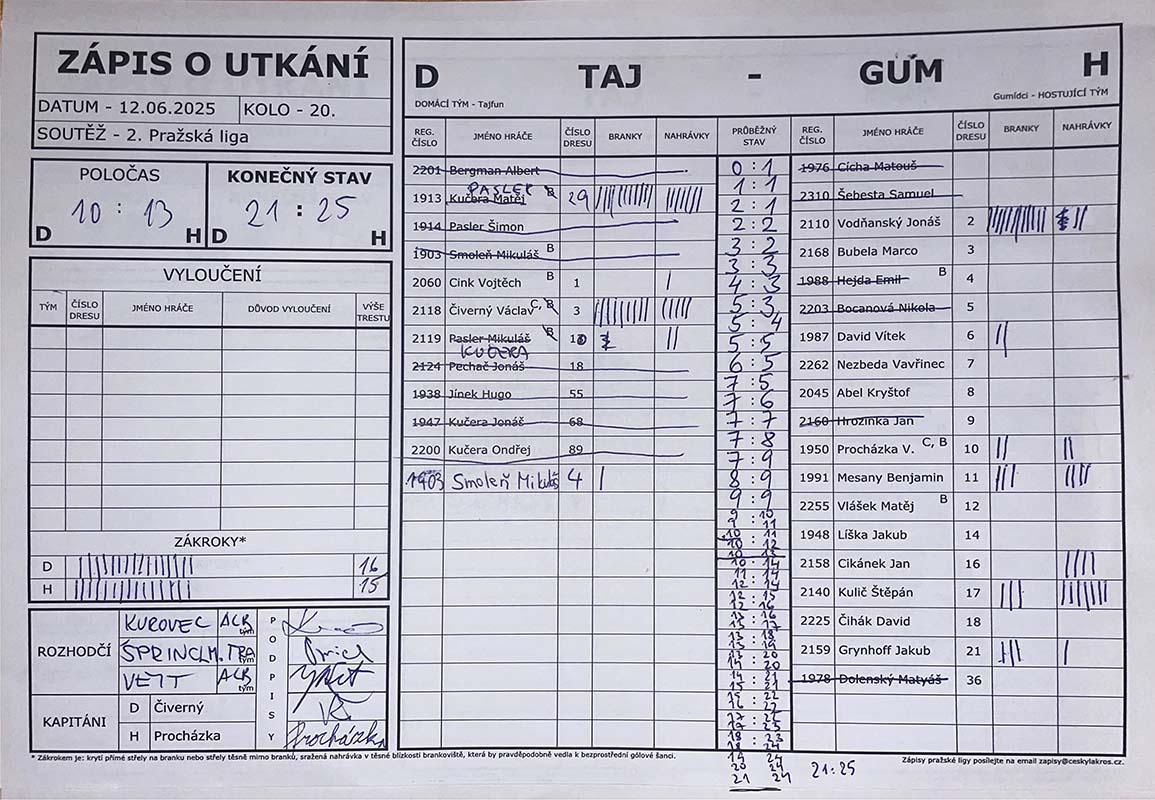 ZÁPIS O UTKÁNÍ
DATUM - 12.06.2025 KOLO - 20.
SOUTĚŽ - 2. Pražská liga
POLOČAS KONEČNÝ STAV
10 : 13 21 : 25
D H D H
VYLOUČENÍ
TÝM ČÍSLO DRESU JMÉNO HRÁČE DŮVOD VYLOUČENÍ VÝŠE TRESTU
ZÁKROKY*
D 16
H 15
ROZHODČÍ KUROVEC ACR tým
ŠPRINCLM. TRA tým
VEIT ACR tým
PODPISY
KAPITÁNI D Čiverný
H Procházka Procházka
D TAJ - GUM H
DOMÁCÍ TÝM - Tajfun Gumídci - HOSTUJÍCÍ TÝM
REG. ČÍSLO JMÉNO HRÁČE ČÍSLO DRESU BRANKY NAHRÁVKY PRŮBĚŽNÝ STAV REG. ČÍSLO JMÉNO HRÁČE ČÍSLO DRESU BRANKY NAHRÁVKY
2201 Bergman Albert
PASLER
1913 Kučera Matěj B 29
1914 Pasler Šimon
1903 Smoleň Mikuláš B
2060 Cink Vojtěch B 1
2118 Čiverný Václav C, B 3
2119 Pasler Mikuláš B
KUČERA
2124 Pechač Jonáš 18
1938 Jínek Hugo 55
1947 Kučera Jonáš 68
2200 Kučera Ondřej 89
1903 Smoleň Mikuláš 4
0 : 1
1 : 1
2 : 1
2 : 2
3 : 2
3 : 3
4 : 3
5 : 3
5 : 4
5 : 5
6 : 5
7 : 5
7 : 6
7 : 7
7 : 8
7 : 9
8 : 9
9 : 9
9 : 10
9 : 11
10 : 11
10 : 12
10 : 13
10 : 14
11 : 14
12 : 14
12 : 15
12 : 16
13 : 16
13 : 18
13 : 19
13 : 20
14 : 20
14 : 21
15 : 21
15 : 22
16 : 22
18 : 23
18 : 24
19 24
20 24
21 24
21:25
1976 Cícha Matouš
2310 Šebesta Samuel
2110 Vodňanský Jonáš 2
2168 Bubela Marco 3
1988 Hejda Emil B 4
2203 Bocanová Nikola 5
1987 David Vítek 6
2262 Nezbeda Vavřinec 7
2045 Abel Kryštof 8
2160 Hrozinka Jan 9
1950 Procházka V. C, B 10
1991 Mesany Benjamin 11
2255 Vlášek Matěj B 12
1948 Líška Jakub 14
2158 Cikánek Jan 16
2140 Kulič Štěpán 17
2225 Čihák David 18
2159 Grynhoff Jakub 21
1978 Dolenský Matyáš 36
* Zákrokem je: krytí přímé střely na branku nebo střely těsně mimo branků, sražená nahrávka v těsné blízkosti brankoviště, která by pravděpodobně vedla k bezprostřední gólové šanci.
Zápisy pražské ligy posílejte na email zapisy@ceskylakros.cz.